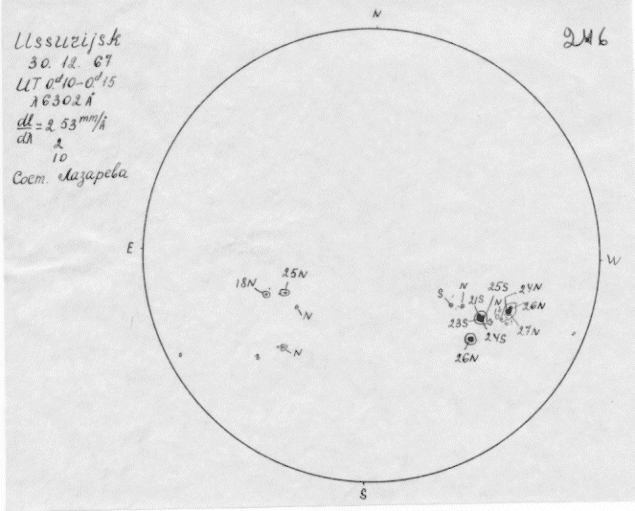 Ussurijsk
30. 12. 67
UT 0.ᵈ10-0.ᵈ15
λ6302Å
dl/dλ = 2.53 mm/Å
2
10
Сост. Лазарева
246
N
E
W
S
18N
25N
N
N
S
N
21S
N
25S
24N
26N
23S
24S
27N
26N